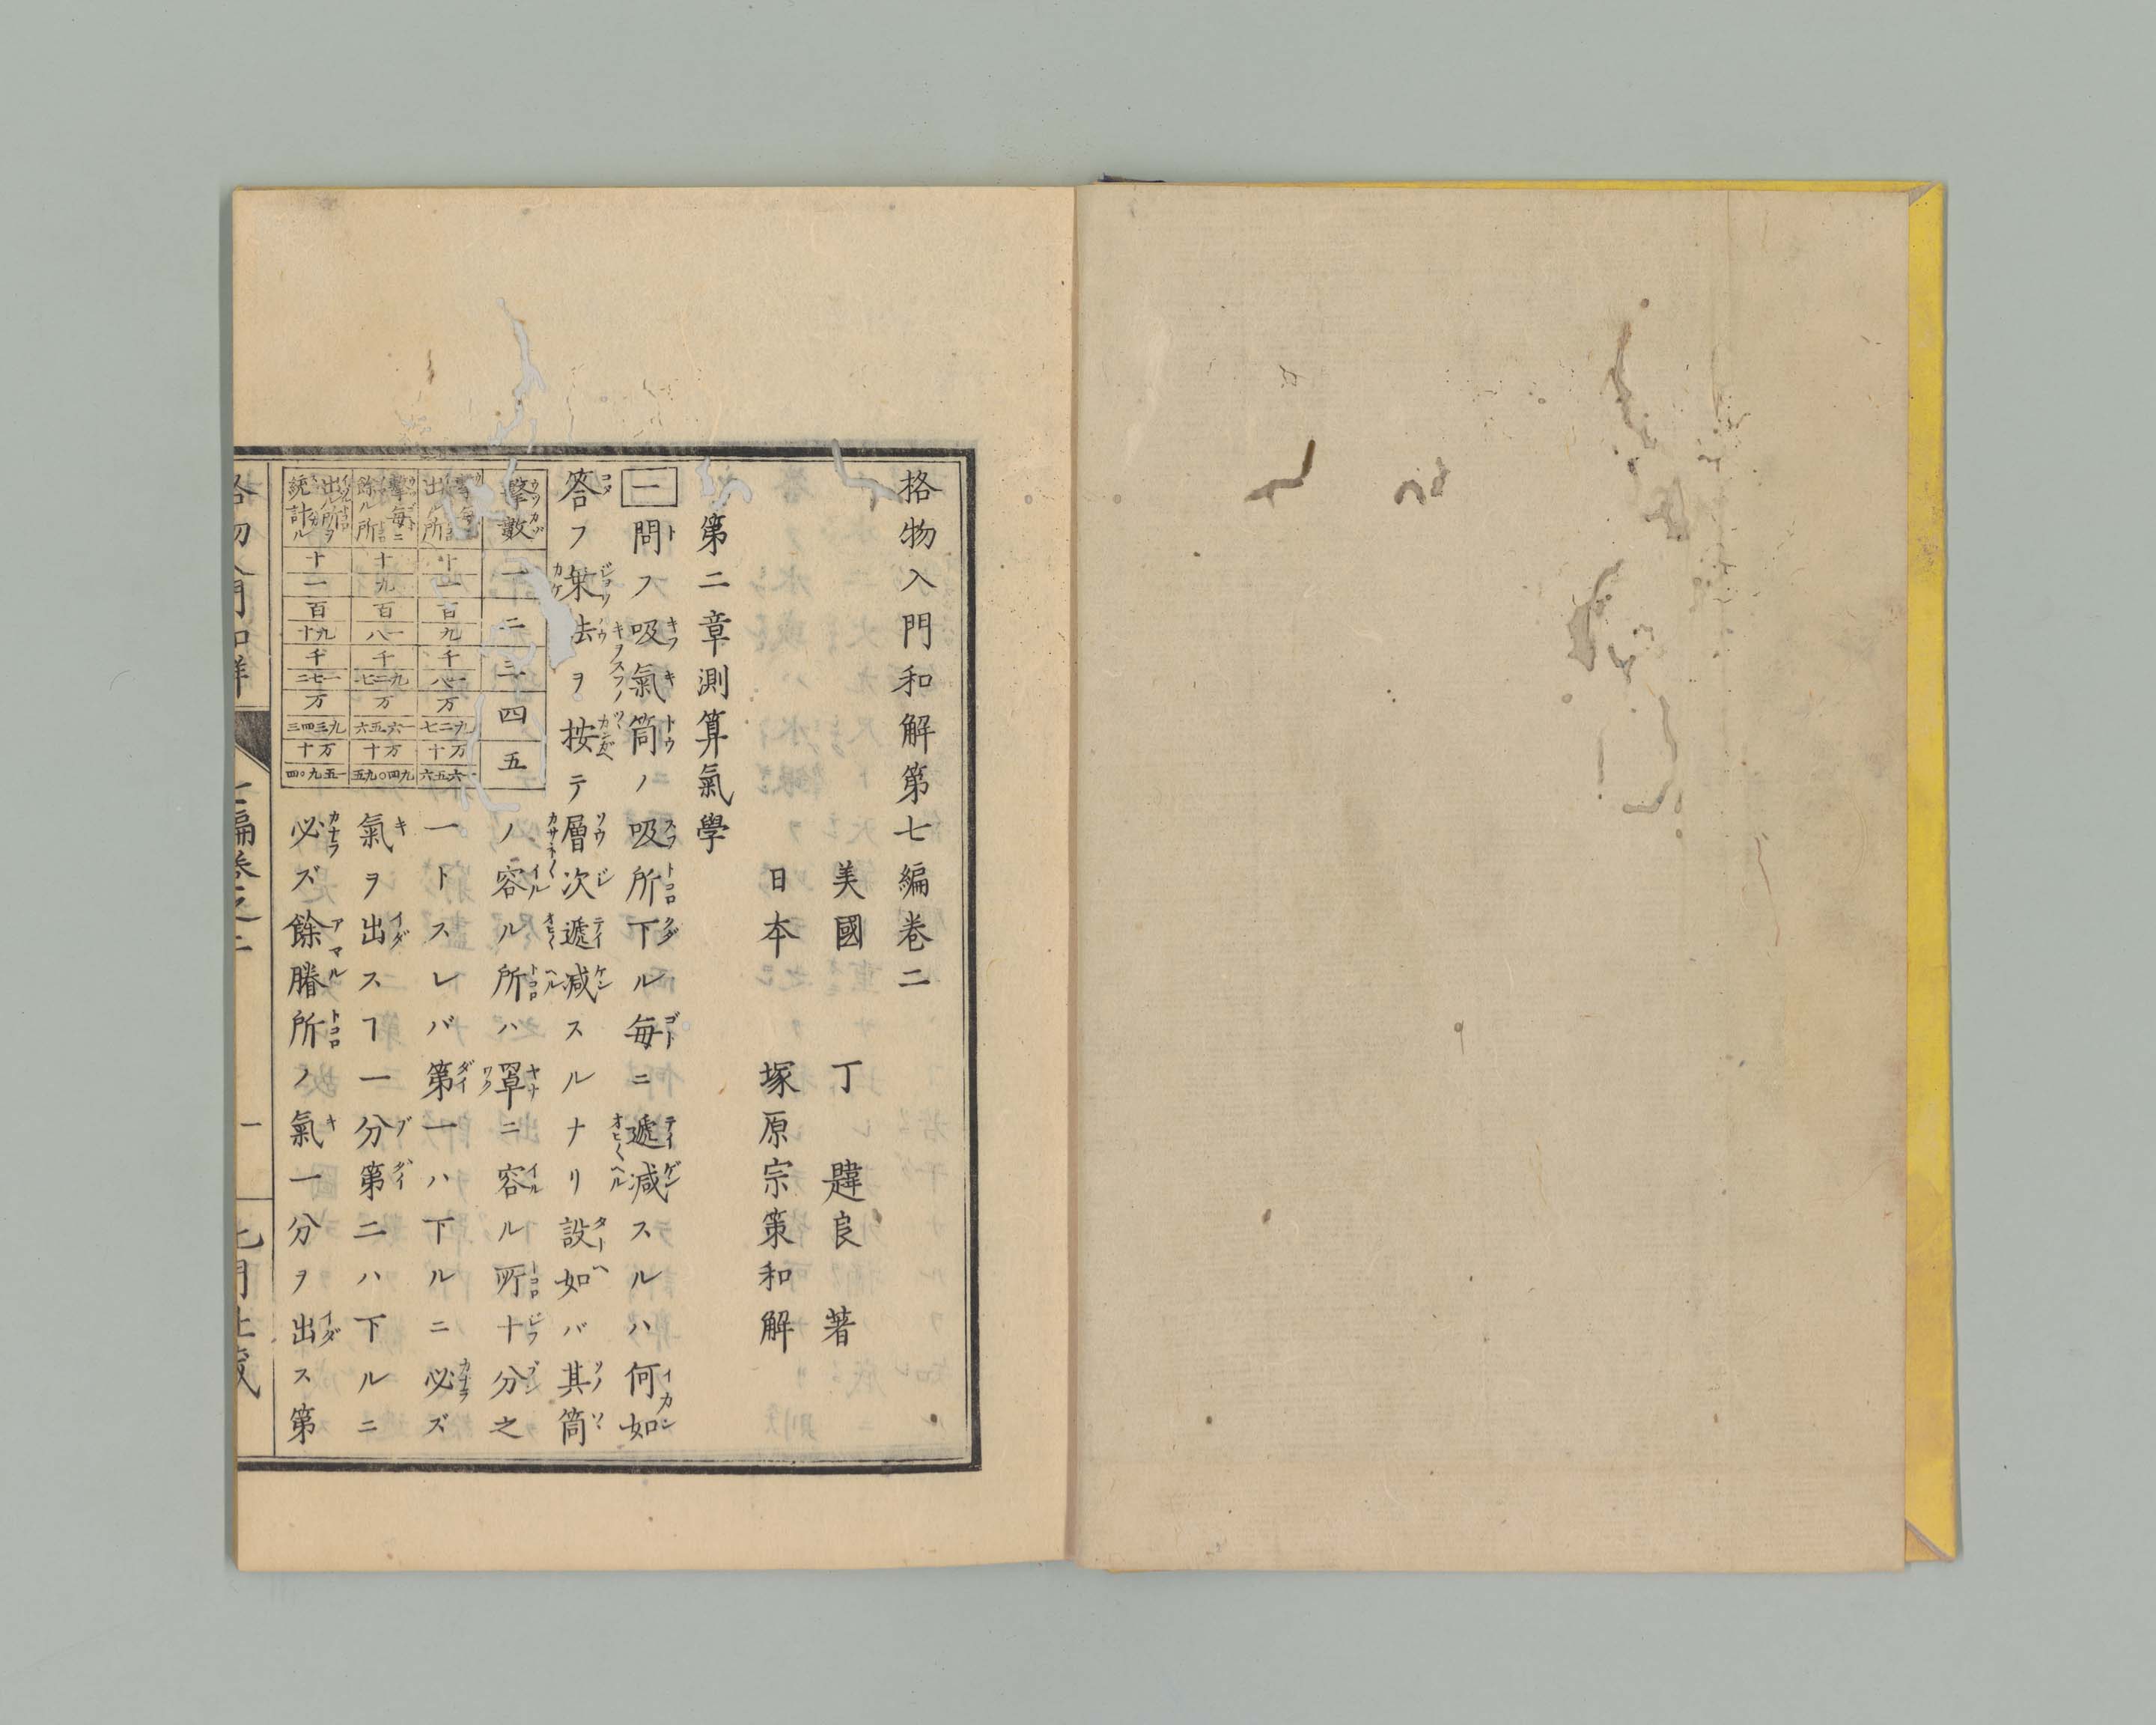 格物入門和解第七編卷二
美國 丁韙良 著
日本 塚原宗策和解
第二章測算氣學
一 問フ吸氣筒ノ吸所下ル毎ニ遞減スルハ何如
答フ乗法ヲ按テ層次遞减スルナリ設如バ其筒
ノ容ル所ハ罩ニ容ル所十分之
一トスレバ第一ハ下ルニ必ズ
氣ヲ出スヿ一分第二ハ下ルニ
必ズ餘賸所ノ氣一分ヲ出ス第
擊數 一 二 三 四 五
出ル所 十 一 百 九 千 八一 万 七二九 十万 六五六一
擊毎ニ餘ル所 十 九 百 八一 千 七二九 万 六五六一 十万 五九〇四九
出ル所ヲ統計ル 十 一 百 十九 千 二七一 万 三四三九 十万 四〇九五一